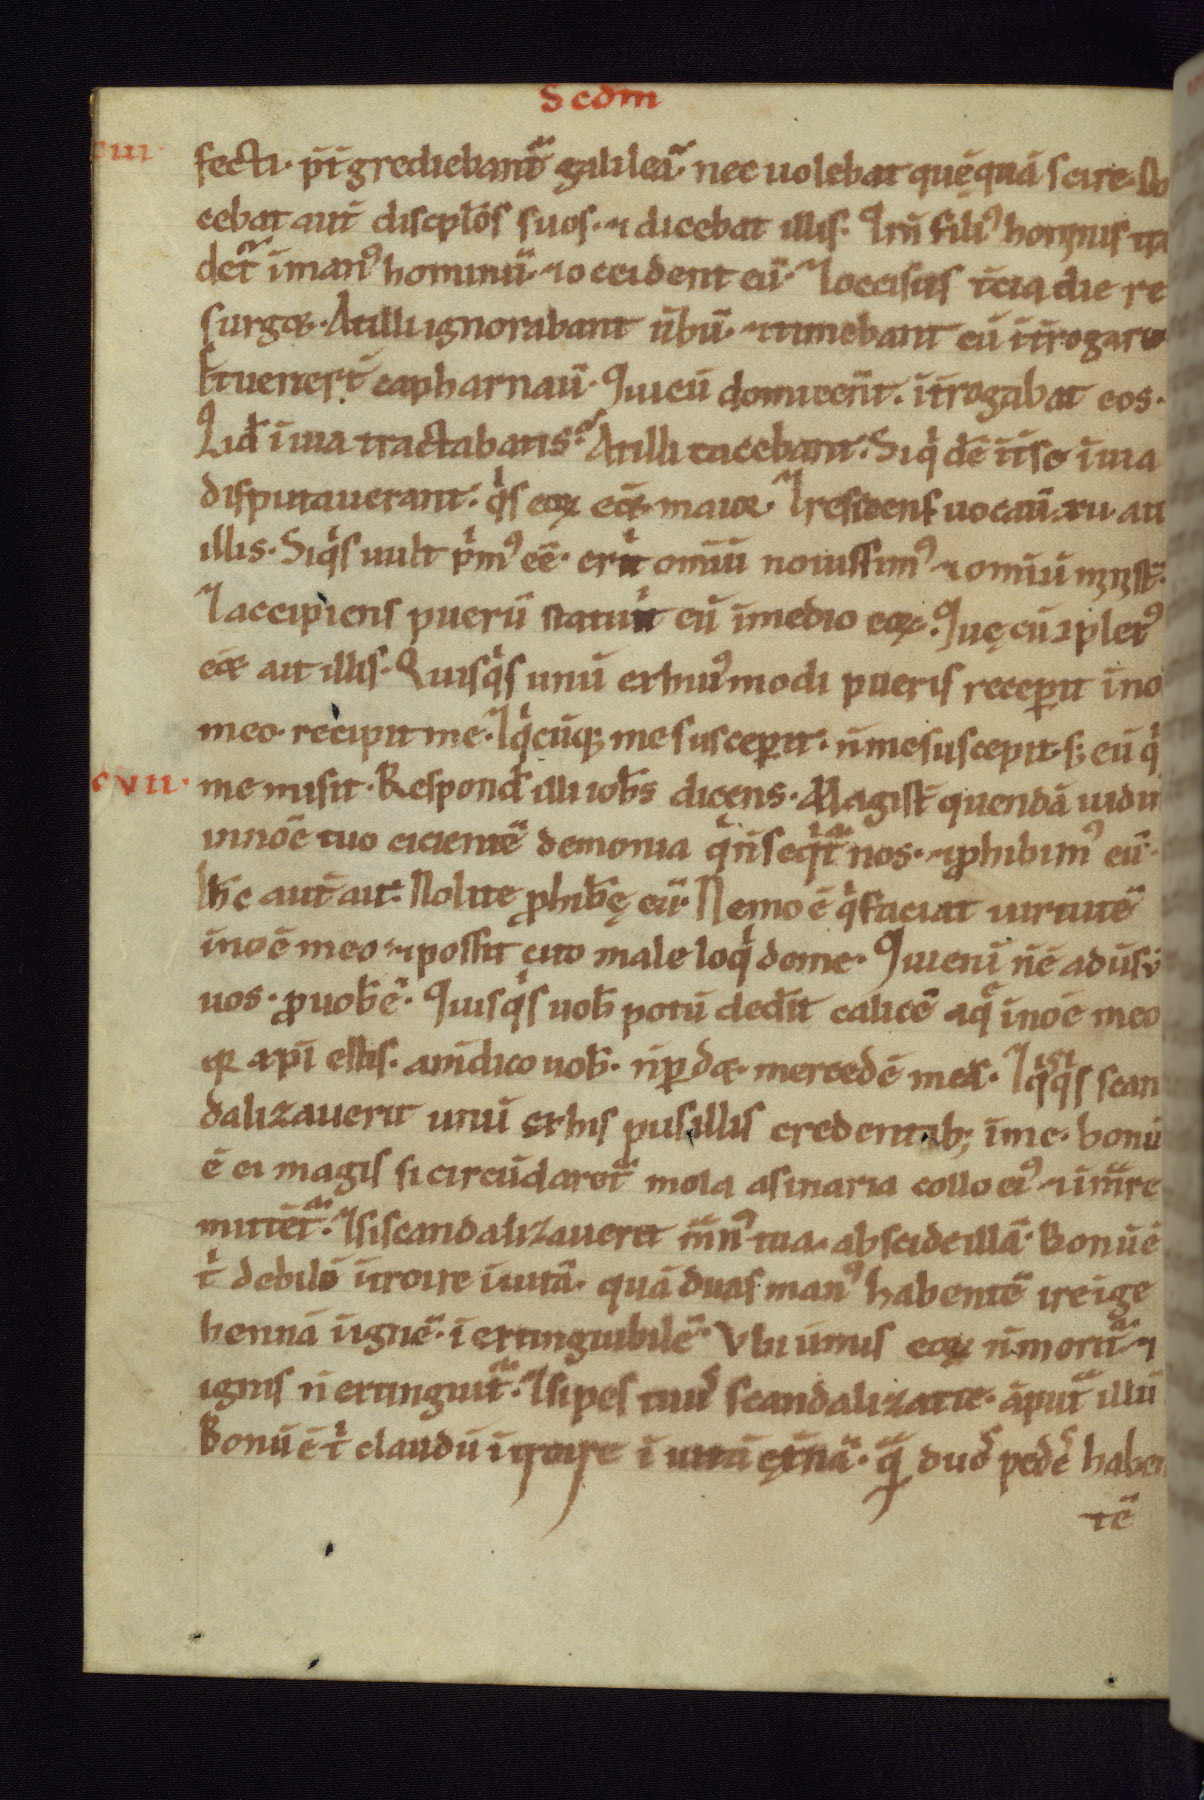 Scdm
fecti· p̄t̄grediebant᷑ galileā· nec uolebat quēquā scire· Do
cebat aut̄ discplōs suos· ⁊ dicebat illis· Qm̄ fili᷒ hominis tra
det᷑ ī man᷒ hominū· ⁊ occident eū· ⁊ occisus t̄cia die re
surget· At illi ignorabant ūbū· ⁊ timebant eū īt̄rogare
Et uener̄t capharnaū· Qui cū domi ceēnt· īt̄rogabat eos·
Qid ī uia tractabatis· At illi tacebant· Siqͥdē īt̄ se ī uia
disputauerant· qͥs eoꝝ eēt maior· ⁊ residens uocauı̄ ·xii· ait
illis· Siqͥs uult pͥm᷒ eē· erit omīū nouissim᷒ ⁊ omīū minist̄·
⁊ accipiens puerū statuit eū ī medio eoꝝ· Quę cū ꝯplet᷒
eēt ait illis· Quisqͥs unū ex huı᷒modi pueris recepit ī no
meo· recipit me· ⁊ qͥcūq; me susceperit· n̄ me suscepit· s; eū qͥ
cvii· me misit· Respond̄ illi ioh̄s dicens· Magist̄ quendā uidim
in nōē tuo eicientē demonia qͥ n̄ seqͥt᷑ nos· ⁊ ꝓhibuim᷒ eū·
Ih̄c aut̄ ait· Nolite ꝓhib̄ę eū· Nemo ē qͥ faciat uirtutē
ī nōē meo ⁊ possit cito male loqͥ de me· Qui enī n̄ē aduſū
uos· ꝓ uob̄ ē· Quisqͥs uob̄ potū dedit calicē aqͤ ī nōē meo
qꝛ xp̄i estis· am̄ dico uob̄· n̄ ꝑdet· mercedē meā· ⁊ qͥsqͥs scan
dalizauerit unū ex his pusillis credentib; ī me· bonū
ē ei magis si circūdaret᷑ mola asinaria collo ei᷒ ⁊ ī mare
mittet᷑· ⁊ si scandalizauerit man᷒ tua· abscide illā· Bonū ē
tͥ debilē īt̄roire ī uitā· quā duas man᷒ habentē ire ī ge
hennā ī ignē· īextinguibilē· Vbi ūmis eoꝝ n̄ morit᷑ ⁊
ignis n̄ extinguit᷑· ⁊ si pes tuus scandalizat te· āput̄ illū
Bonū ē tͥ claudū īt̄roire ī uitā ęt̄nā· qͣ̄ duos pedes haben
tē